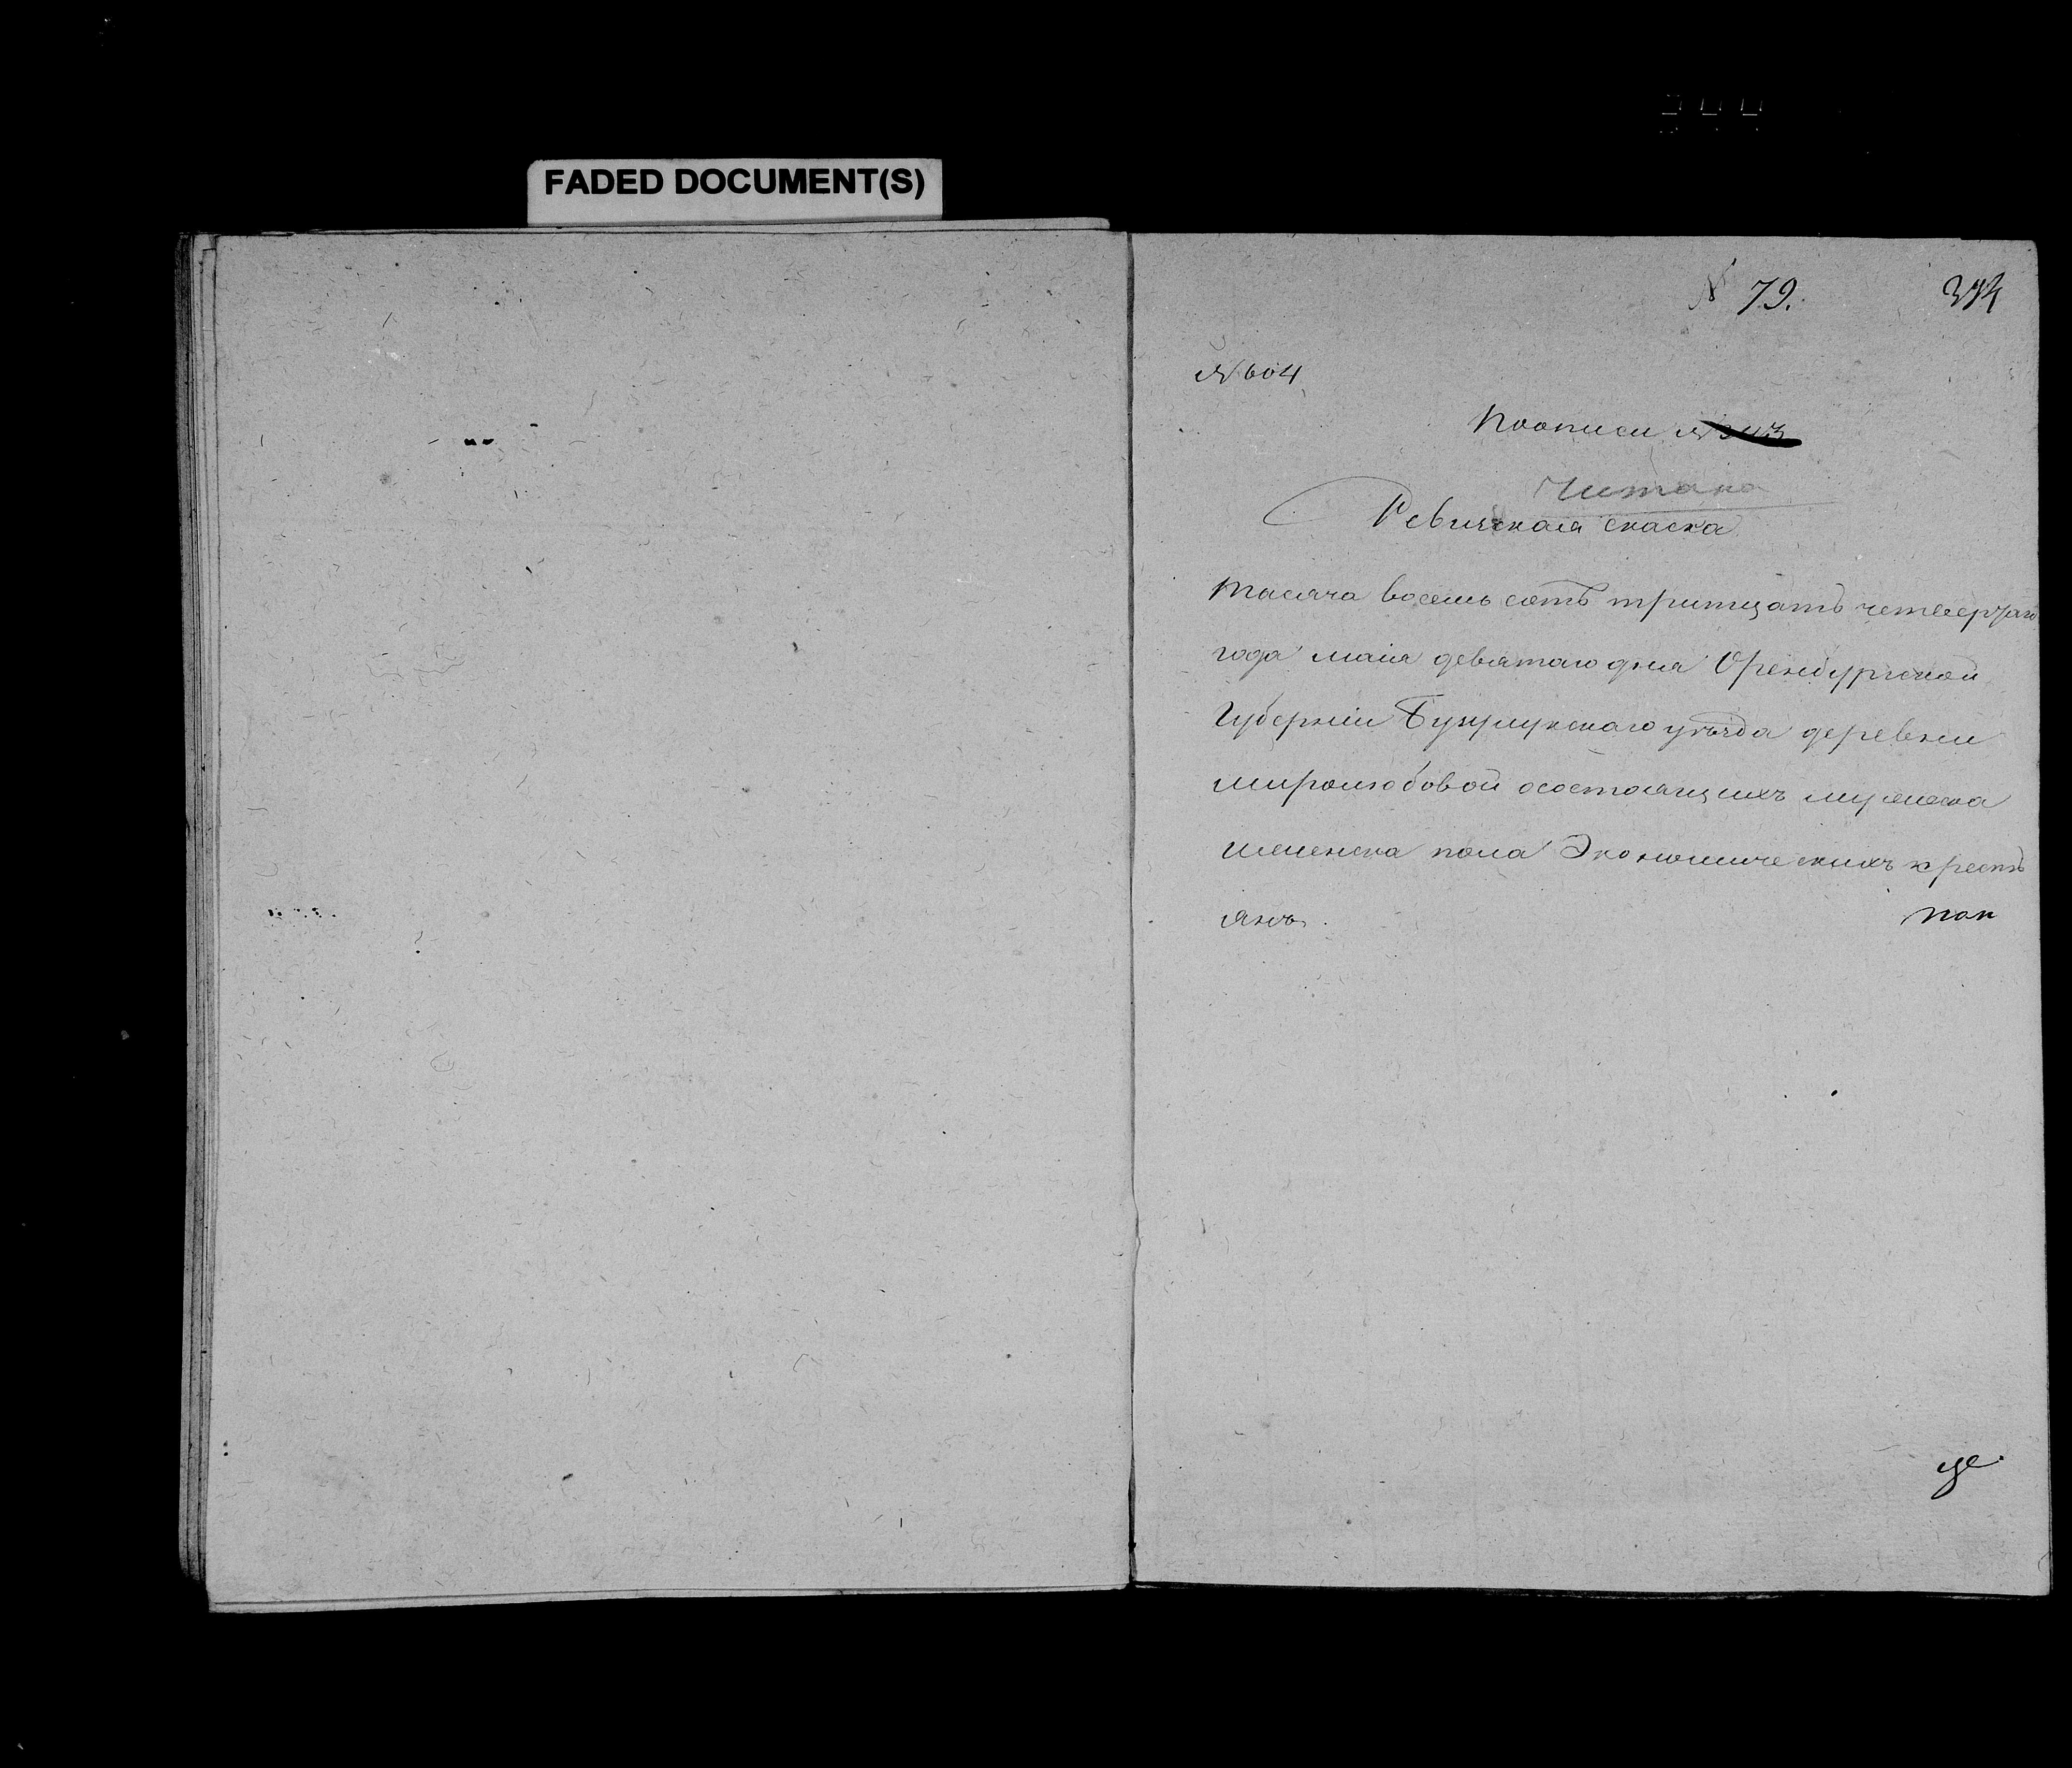 FADED DOCUMENT(S)
№ 79.
№ 604
По описи
Читана
Ревизская скаска
тысяча восемь сотъ тритцать четвертаго
года маія деватаго дня Оренбургской
Губерніи Бузулукскаго уѣзда деревни
миролюбовой осостоящихъ мужеска
иженска пола Экономическихъ кресть
янъ.